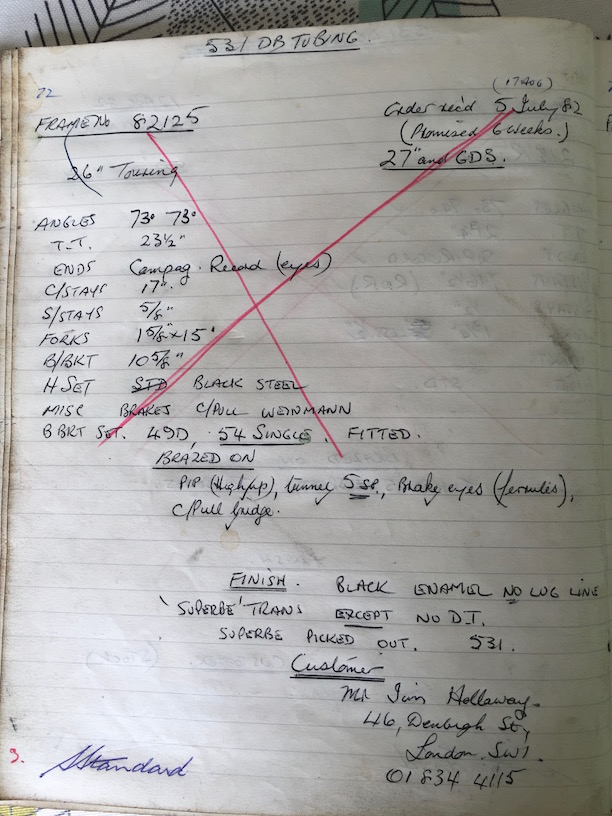 531 DB TUBING.
72
(17 AUG)
FRAME No 82125
Order rec'd 5 July 82
(Promised 6 weeks.)
27" and GDS.
26" Touring
ANGLES 73° 73°
T.T. 23½"
ENDS Campag. Record (eyes)
C/STAYS 17".
S/STAYS 5/8"
FORKS 1 5/8" x 15°
B/BKT 10 5/8"
H SET STD BLACK STEEL
MISC BRAKES C/PULL WEINMANN
B BRT SET. 49D, 54 SINGLE. FITTED.
BRAZED ON
PIP (High up), tunnel 5 SP., Brake eyes (ferrules),
C/Pull bridge.
FINISH. BLACK ENAMEL NO LUG LINE
'SUPERBE' TRANS EXCEPT NO D.T.
SUPERBE PICKED OUT. 531.
Customer
Mr Hollaway.
46, Denbigh St,
London. SW1.
01 834 4115
3.
Standard